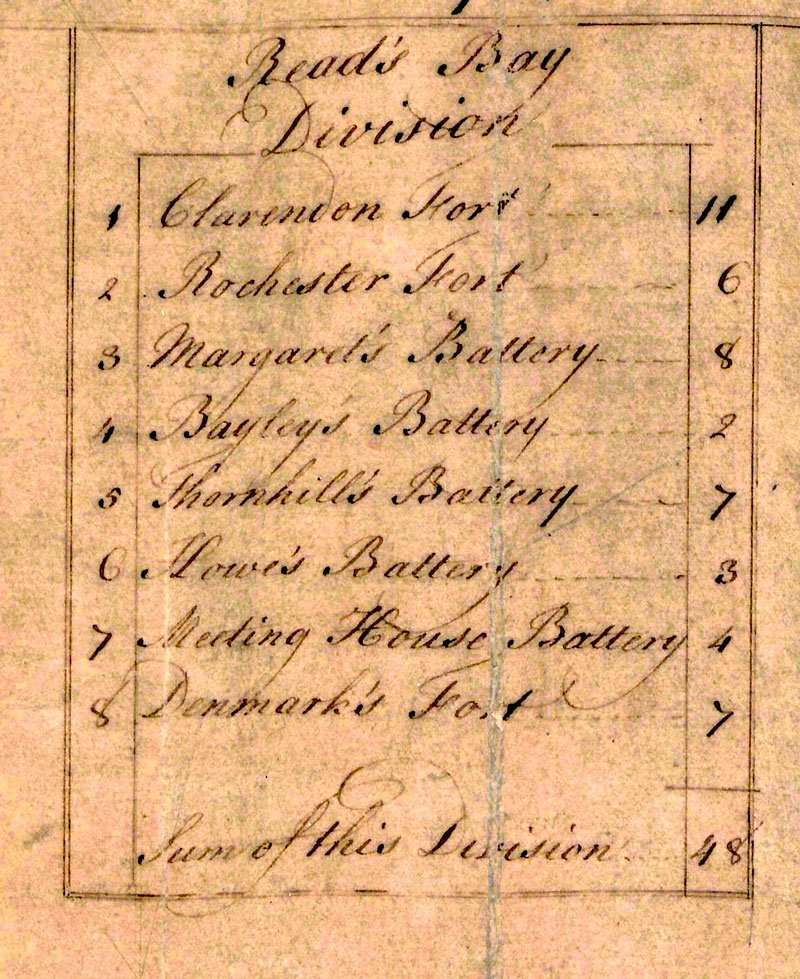 Read's Bay
Division
1 Clarendon Fort 11
2 Rochester Fort 6
3 Margaret's Battery 8
4 Bayley's Battery 2
5 Thornhill's Battery 7
6 Howe's Battery 3
7 Meeting House Battery 4
8 Denmark's Fort 7
Sum of this Division 48